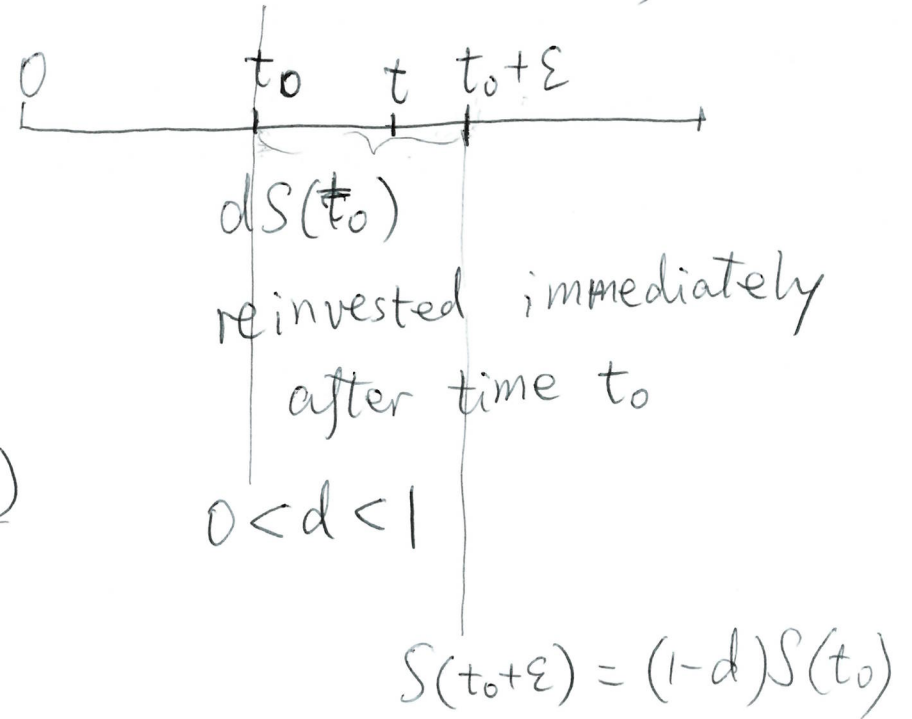 0 t₀ t t₀+ε
dS(t₀)
reinvested immediately
after time t₀
)
0<d<1
S(t₀+ε) = (1-d)S(t₀)